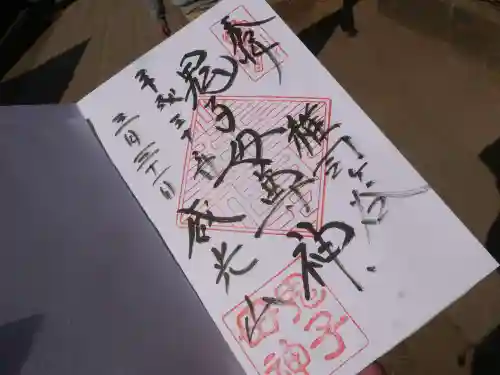 奉
雑司ヶ谷
鬼子母尊神
平成三十年
三月三十一日
威光山
鬼子
母神